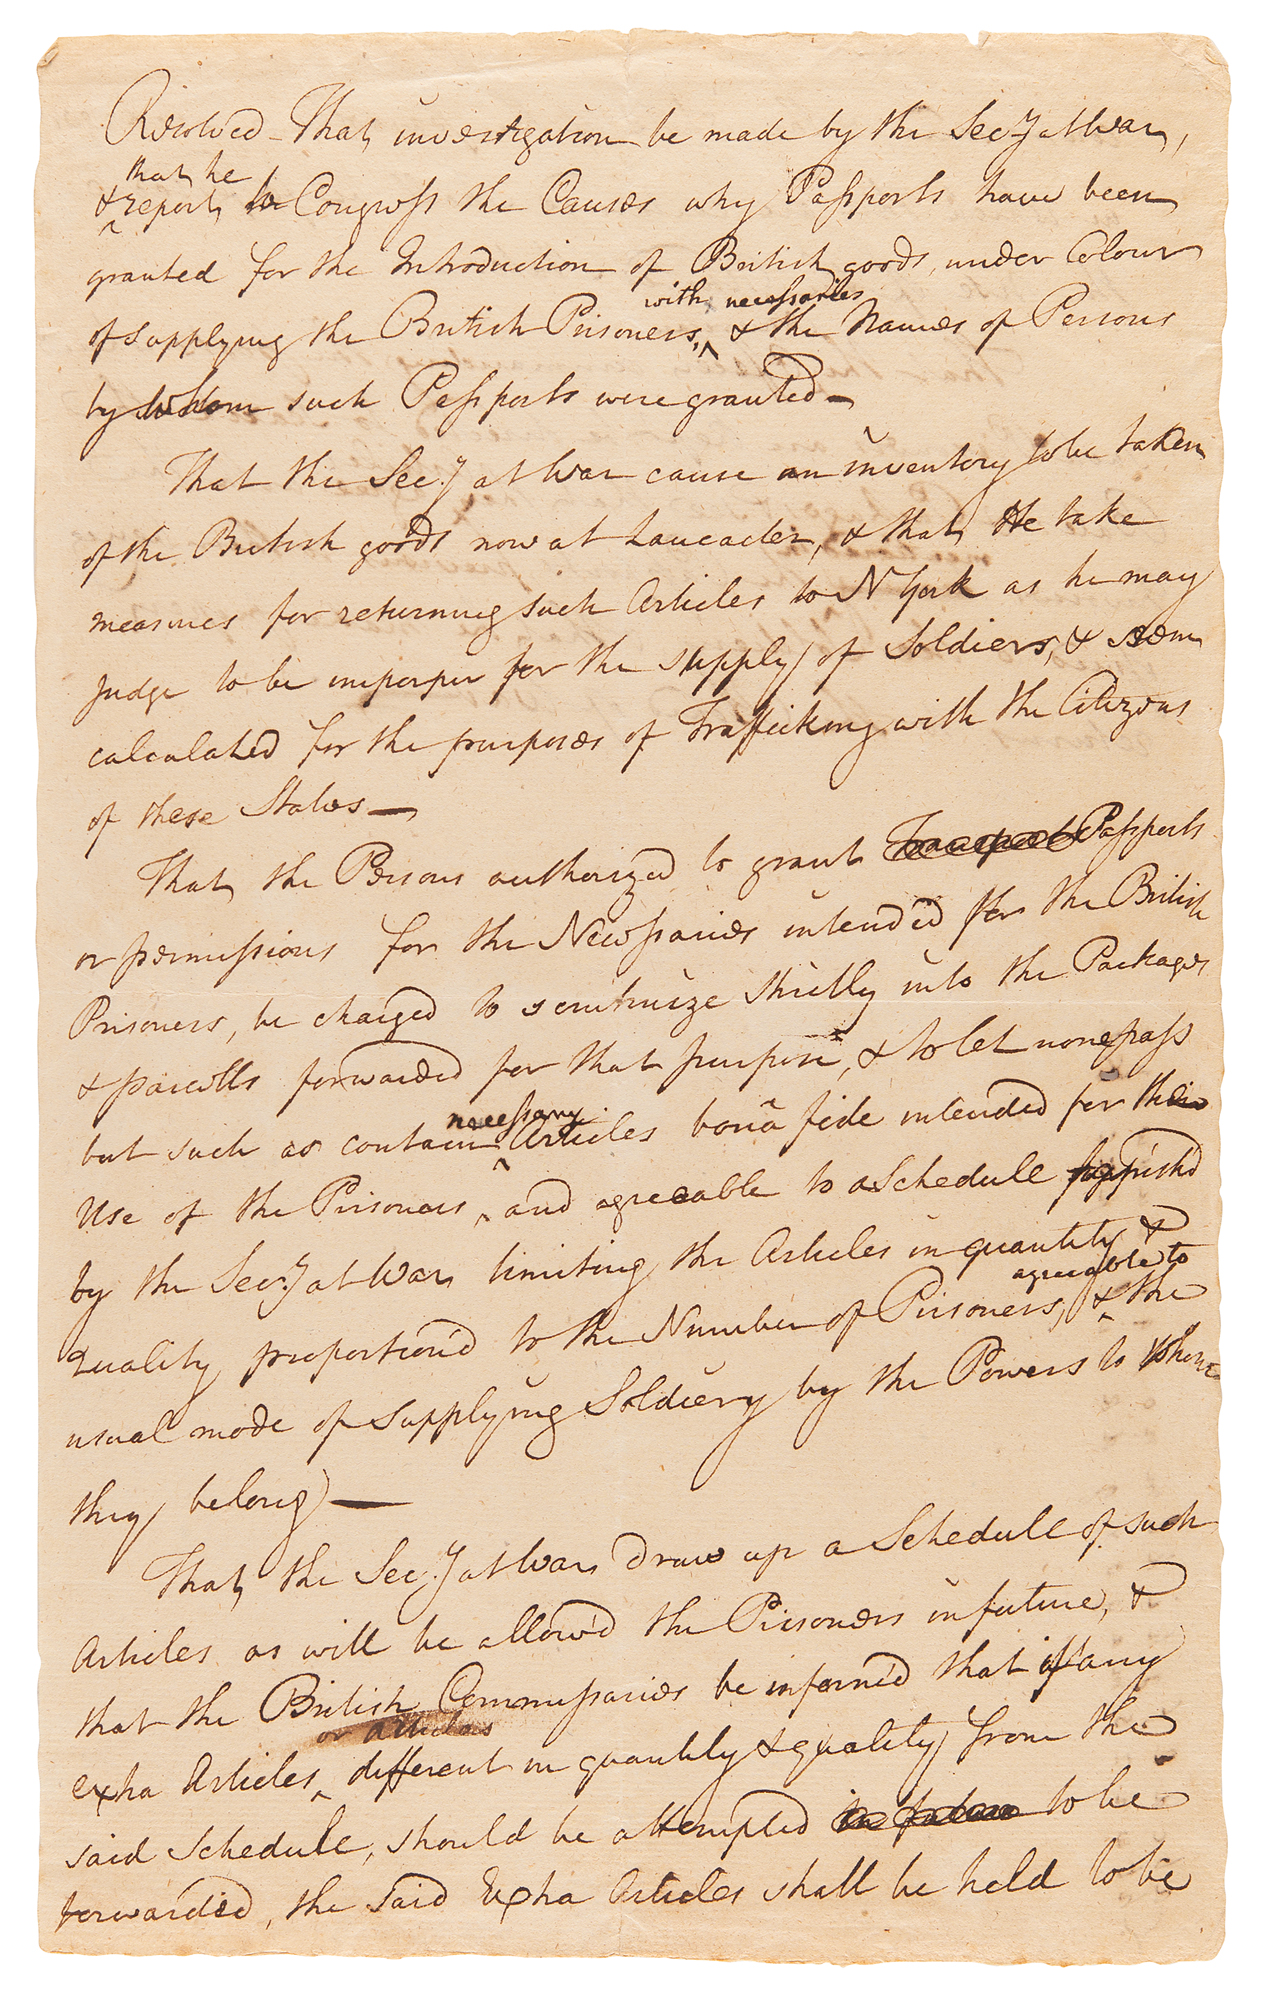 Resolved – That investigation be made by the Secy at War,
that he
& report to Congress the Causes why Passports have been
granted for the Introduction of British goods, under Colour
with necessaries
of supplying the British Prisoners, & the Names of Persons
by whom such Passports were granted –
That the Secy at War cause an inventory to be taken
of the British goods now at Lancaster, & that He take
measures for returning such Articles to N York as he may
judge to be improper for the supply of Soldiers, & seem
calculated for the purposes of Trafficking with the Citizens
of these States —
That the Persons authorized to grant Passports
or permissions for the Necessaries intended for the British
Prisoners, be charged to scrutinize strictly into the Packages
& parcells forwarded for that purpose, & to let none pass
necessary
but such as contain Articles bona fide intended for the
Use of the Prisoners, and agreeable to a Schedule furnish'd
by the Secy at War limiting the Articles in quantity &
agreeable to
quality proportion'd to the Number of Prisoners, & the
usual mode of supplying Soldiery by the Powers to whom
they belong —
That the Secy at War draw up a Schedule of such
Articles as will be allow'd the Prisoners in future, &
that the British Commissaries be inform'd that if any
or Articles
extra Articles, different in quantity & quality from the
said Schedule, should be attempted to be
forwarded, the said Extra Articles shall be held to be